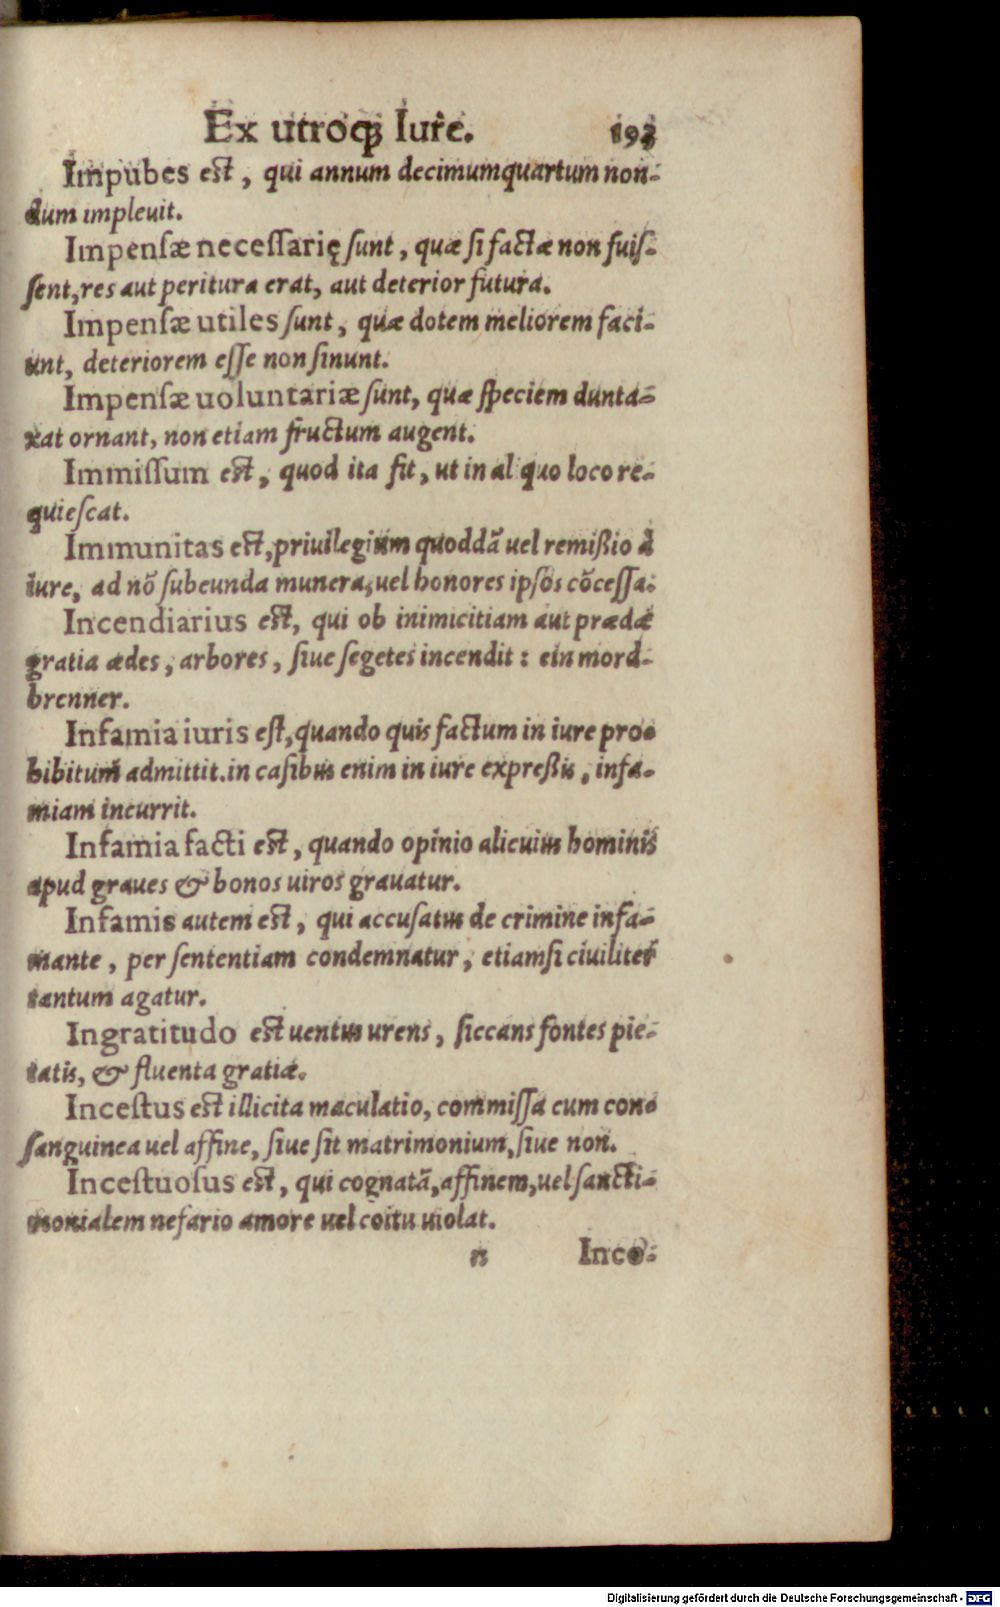 Ex utroqꝫ Iure. 193
Impubes est, qui annum decimumquartum non-
dum impleuit.
Impensæ necessarię sunt, quæ si factæ non fuis-
sent, res aut peritura erat, aut deterior futura.
Impensæ utiles sunt, quæ dotem meliorem faci-
unt, deteriorem esse non sinunt.
Impensæ uoluntariæ sunt, quæ speciem dunta-
xat ornant, non etiam fructum augent.
Immissum est, quod ita fit, ut in al quo loco re-
quiescat.
Immunitas est, priuilegium quoddã uel remißio à
iure, ad nõ subeunda munera, uel honores ipsos cõcessa.
Incendiarius est, qui ob inimicitiam aut prædæ
gratia ædes, arbores, siue segetes incendit: ein mord-
brenner.
Infamia iuris est, quando quis factum in iure pro-
hibitum admittit. in casibus enim in iure expreßis, infa-
miam incurrit.
Infamia facti est, quando opinio alicuius hominis
apud graues & bonos uiros grauatur.
Infamis autem est, qui accusatus de crimine infa-
mante, per sententiam condemnatur, etiamsi ciuiliter
tantum agatur.
Ingratitudo est uentus urens, siccans fontes pie-
tatis, & fluenta gratiæ.
Incestus est illicita maculatio, commissa cum con-
sanguinea uel affine, siue sit matrimonium, siue non.
Incestuosus est, qui cognatã, affinem, uel sancti-
monialem nefario amore uel coitu uiolat.
n Inco-
Digitalisierung gefördert durch die Deutsche Forschungsgemeinschaft - DFG